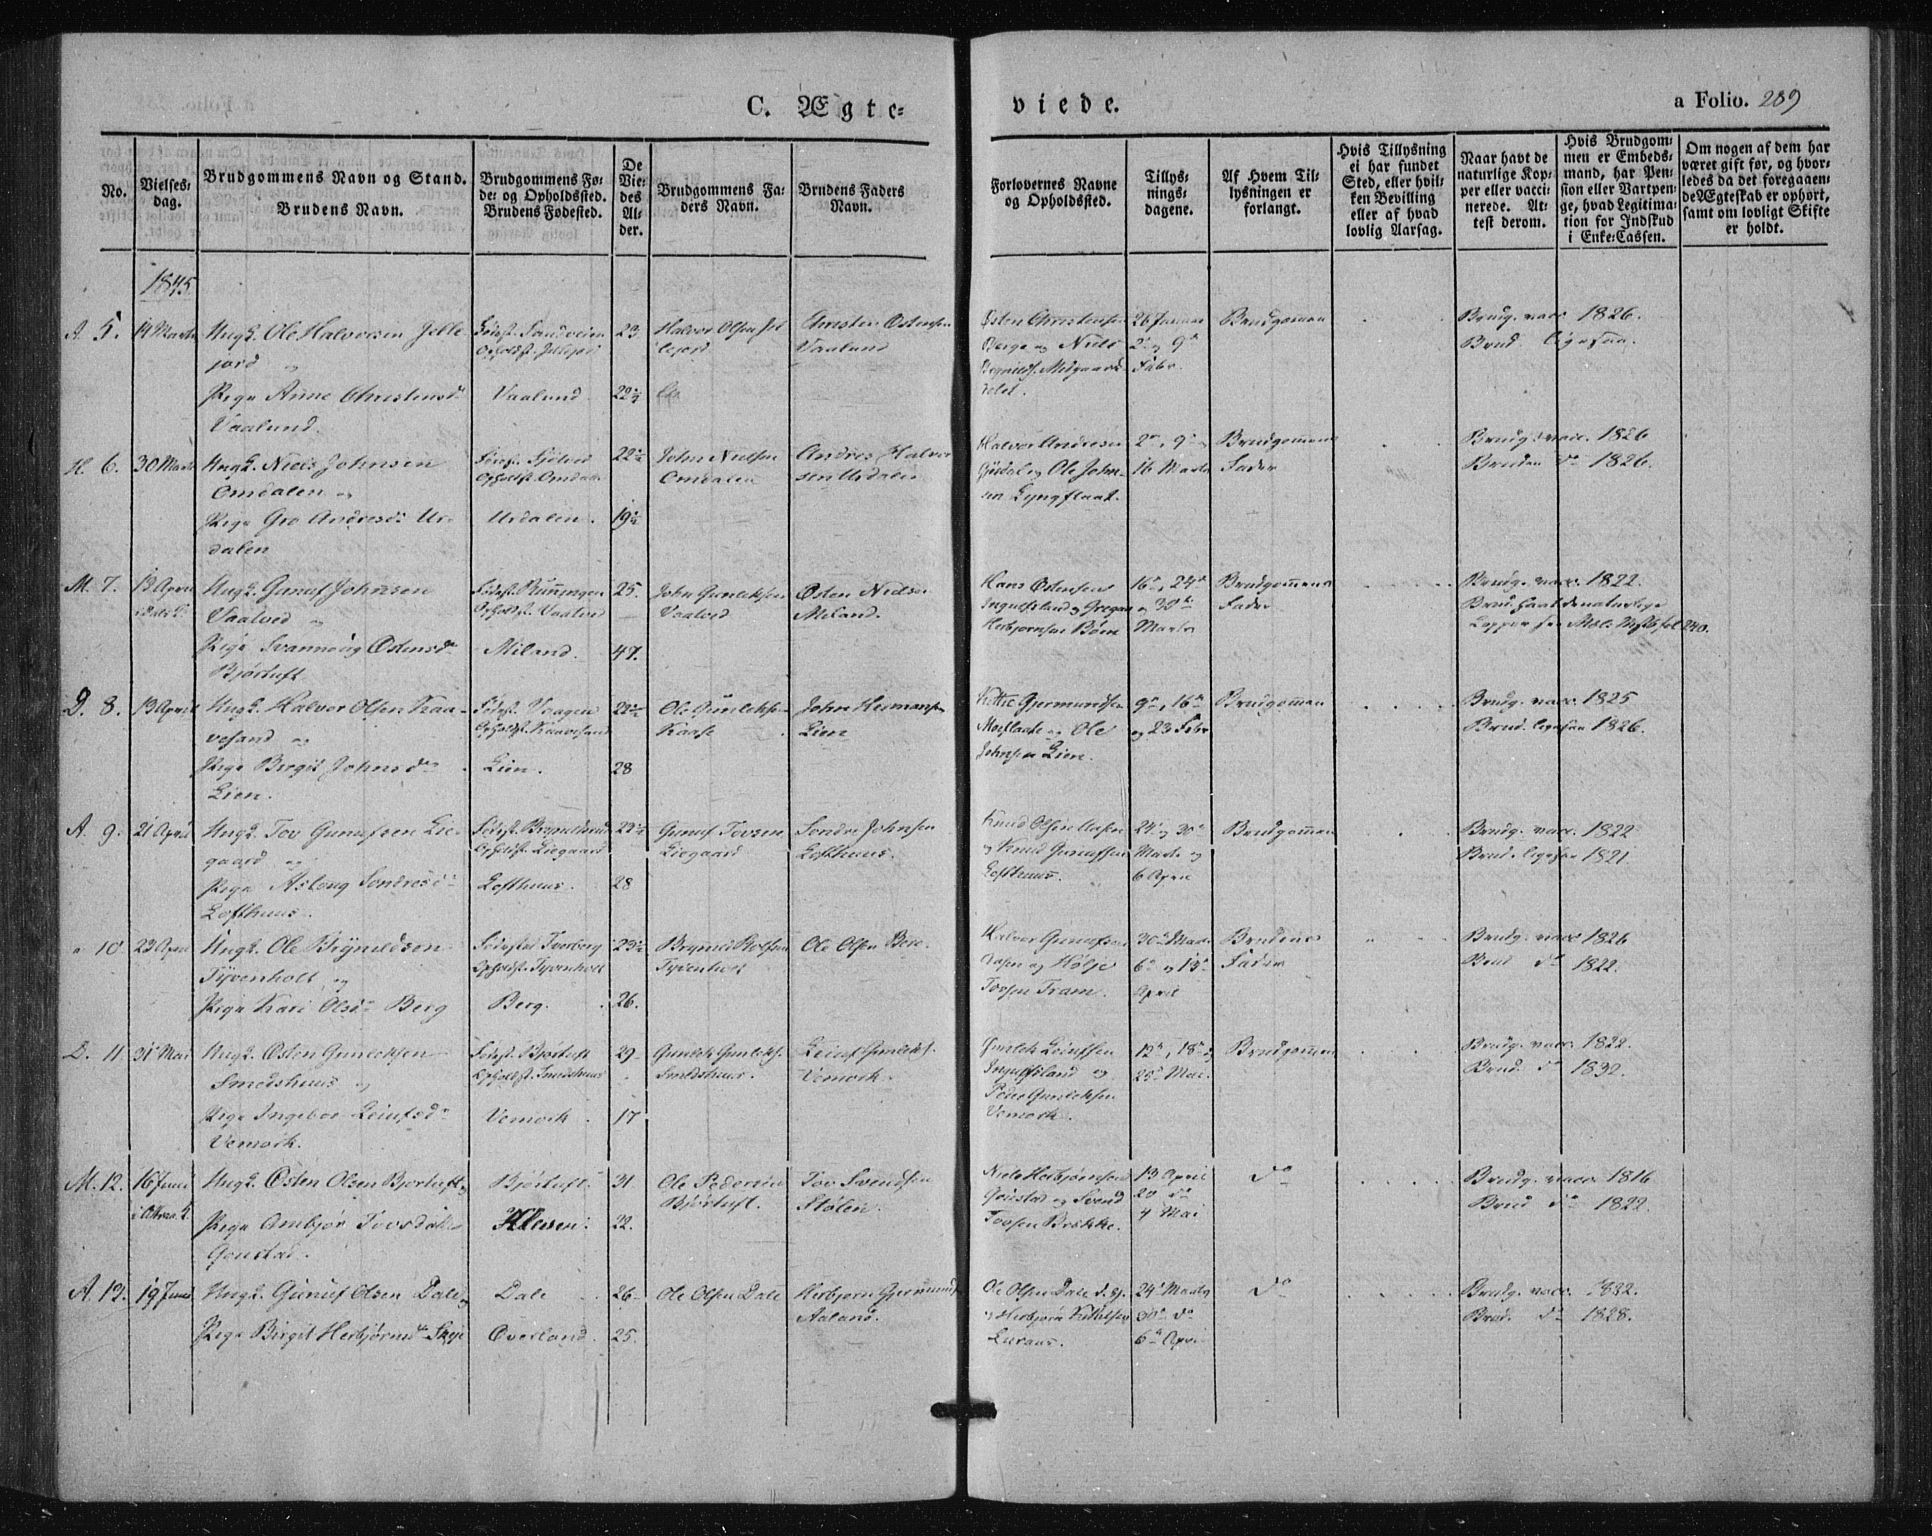 C. Ægte-
viede.
a Folio. 289
No.
Vielses-
dag.
Brudgommens Navn og Stand.
Brudens Navn.
Brudgommens Fø-
de- og Opholdssted.
Brudens Fødested.
De
Vie-
des
Al-
der.
Brudgommens Fa-
ders Navn.
Brudens Faders
Navn.
Forlovernes Navne
og Opholdssted.
Tillys-
nings-
dagene.
Af Hvem Til-
lysningen er
forlangt.
Hvis Tillysning
ei har fundet
Sted, eller hvil-
ken Bevilling
eller af hvad
lovlig Aarsag.
Naar havt de
naturlige Kop-
per eller vacci-
nerede. At-
test derom.
Hvis Brudgom-
men er Embeds-
mand, har Pen-
sion eller Vartpen-
ge, hvad Legitima-
tion for Indskud
i Enke-Cassen.
Om nogen af dem har
været gift før, og hvor-
ledes da det foregaaen-
de Ægteskab er ophørt,
samt om lovligt Skifte
er holdt.
1845
A. 5. 14 Marts Ungk. Ole Halvorsen Jelle-
jord og
Pige Anne Christensd.
Vaalund.
Fødest. Sandveien
Opholdst. Jellejord
Vaalund.
23
22¼
Halvor Olsen Jel-
lejord
Christen Østensen
Vaalund
Østen Christensen
Berge og Niels
26 Januar
2den og 9de
Febr.
Brudgomen
Brudg. vacc. 1826.
Brud. ligesaa.
H. 6. 30 Marts Ungk. Niels Johnsen
Omdalen og
Pige Gro Andresd. Ur-
dalen
Opholdst. Omdalen
Urdalen.
22½
19½
John Nielsen
Omdalen
Andres Halvor-
sen Urdalen
Halvor Andresen
og Ole John-
sen Lyngflaat.
2den, 9de
16 Marts
Brudgomens
Fader
Brudg. vacc. 1826
Bruden do 1826.
M. 7. 13 April
Ungk. Gunuf Johnsen
Vaalved og
Pige Svannoug Østensd.
Bjørtuft
Opholdst. Vaalved
Miland.
25.
47.
John Gunleksen
Vaalved
Østen Nielsen
Miland.
Hans Østensen
Ingulfsland og Gregar
Herbjørnsen Bøen
16de, 24de
og 30te
Marts
Brudgommens
Fader
Brudg. vacc. 1822.
Brud. havt de naturlige
Kopper 240.
D. 8. 13 April Ungk. Halvor Olsen Kaa-
vesand og
Pige Birgit Johnsd.
Lien.
Fødest. Vaagen
Opholdst. Kaavesand
Lien.
22½
28
Ole Gunleksen
Kaase
John Hermansen
Lien
Kittil Germundsen
og Ole
Johnsen Lien.
9de, 16de
og 23 Febr
Brudgommen
Brudg. vacc. 1825
Brud. ligesaa 1826.
A. 9. 21 April Ungk. Tov Gunufsen Lie-
gaard og
Pige Asloug Sondresd.
Lofthuus.
Opholdst. Liegaard
Lofthuus.
28
Gunuf Tovsen
Liegaard
Sondre Johnsen
Lofthuus.
Knud Olsen
og Knud Gunufsen
Lofthuus.
24de og 30te
Marts og
6 April
Brudgommen
Brudg. vacc. 1822
Brud. ligesaa 1821.
" 10 23 April Ungk. Ole Brynildsen
Tyvenholt og
Pige Kari Olsd. Berg
Fødested Tverberg
Opholdst. Tyvenholt
Berg.
23½
26.
Tyvenholt
Ole Olsen Berg
Halvor Gunufsen
og Hølje
Tovsen Tram.
30te Marts
6te og 13de
April
Brudens
Fader
Brudg. vacc. 1826
Brud do 1822.
D. 11 31te Mai Ungk. Østen Gunleksen
Smedshuus og
Pige Ingebor Leiufsd.
Vemork.
Fødest. Bjørtuft
Opholdst. Smedshuus
Vemork
29
17
Gunlek Gunleks.
Smedshuus.
Leiuf Gunleks.
Vemork.
Gunlek Leiufsen
Ingulfsland og
Peder Gunleksen
Vemork.
12te, 18de og
25de Mai.
Brudgommen
Brudg. vacc. 1822.
Brud. do 1832.
M. 12. 16 Juni Ungk. Østen Olsen Bjørtuft og
Pige Ambjør Tovsd.
Goustad.
Bjørtuft.
31.
22.
Ole Pedersen
Bjørtuft.
Tov Svendsen
Stølen.
Niels Herbjørnsen
Goustad og Svend
Tovsen Bække.
13 April
20 do
4 Mai
do
Brudg. vacc. 1816
Brud do 1822.
A. 12. 19 Juni Ungk. Gunuf Olsen Dale og
Pige Birgit Herbjørnsd. Skeje
Dale
Øverland.
26
25.
Ole Olsen Dale
Herbjørn Germunds.
Aaland.
Ole Olsen Dale d. y.
og Herbjørn Kittilsen
Luraas.
24de Marts
30te do
6te April
do
Brudg. vacc. 1832.
Brud. do 1828.